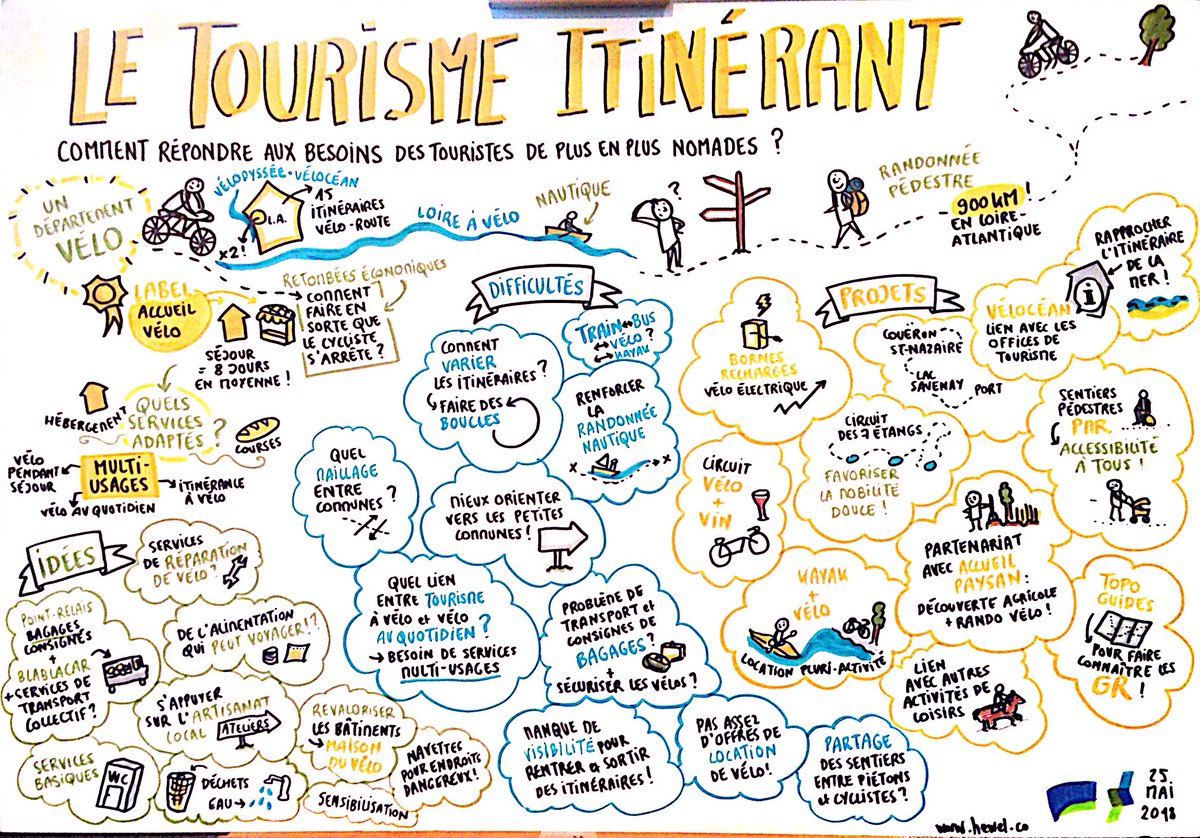 LE TOURISME ITINÉRANT
COMMENT RÉPONDRE AUX BESOINS DES TOURISTES DE PLUS EN PLUS NOMADES ?
UN
DÉPARTEMENT
VÉLO
VÉLODYSSÉE • VÉLOCÉAN
x2 !
L.A.
15
ITINÉRAIRES
VÉLO-ROUTE
LOIRE À VÉLO
NAUTIQUE
?
RANDONNÉE
PÉDESTRE
900 KM !
EN LOIRE-
ATLANTIQUE
LABEL
ACCUEIL
VÉLO
SÉJOUR
= 8 JOURS
EN MOYENNE !
RETOMBÉES ÉCONOMIQUES
COMMENT
FAIRE EN
SORTE QUE
LE CYCLISTE
S'ARRÊTE ?
HÉBERGEMENT
QUELS
SERVICES
ADAPTÉS ?
COURSES
VÉLO
PENDANT
SÉJOUR
MULTI-
USAGES
ITINÉRANCE
À VÉLO
VÉLO AU QUOTIDIEN
IDÉES
SERVICES
DE RÉPARATION
DE VÉLO ?
POINT-RELAIS
BAGAGES
CONSIGNÉS
+
BLABLACAR
+ SERVICES DE
TRANSPORT
COLLECTIF ?
DE L'ALIMENTATION
QUI PEUT VOYAGER !?
S'APPUYER
SUR L'ARTISANAT
LOCAL
ATELIERS
REVALORISER
LES BÂTIMENTS
MAISON
DU VÉLO
NAVETTES
POUR ENDROITS
DANGEREUX !
SERVICES
BASIQUES
WC
DÉCHETS
EAU
SENSIBILISATION
DIFFICULTÉS
COMMENT
VARIER
LES ITINÉRAIRES ?
FAIRE DES
BOUCLES
TRAIN ↔ BUS
↔ VÉLO ?
↔ KAYAK
RENFORCER
LA
RANDONNÉE
NAUTIQUE
QUEL
MAILLAGE
ENTRE
COMMUNES ?
MIEUX ORIENTER
VERS LES PETITES
COMMUNES !
QUEL LIEN
ENTRE TOURISME
À VÉLO ET VÉLO
AU QUOTIDIEN ?
→ BESOIN DE SERVICES
MULTI-USAGES
PROBLÈME DE
TRANSPORT ET
CONSIGNES DE
BAGAGES ?
+
SÉCURISER LES VÉLOS ?
MANQUE DE
VISIBILITÉ POUR
RENTRER & SORTIR
DES ITINÉRAIRES !
PAS ASSEZ
D'OFFRES DE
LOCATION
DE VÉLO !
PARTAGE
DES SENTIERS
ENTRE PIÉTONS
& CYCLISTES ?
PROJETS
BORNES
RECHARGES
VÉLO ÉLECTRIQUE
COUËRON
ST-NAZAIRE
LAC
SAVENAY
PORT
VÉLOCÉAN
LIEN AVEC LES
OFFICES DE
TOURISME
i
RAPPROCHER
L'ITINÉRAIRE
DE LA
MER !
CIRCUIT
DES 7 ÉTANGS
FAVORISER
LA MOBILITÉ
DOUCE !
SENTIERS
PÉDESTRES
PMR
ACCESSIBILITÉ
À TOUS !
CIRCUIT
VÉLO
+
VIN
PARTENARIAT
AVEC ACCUEIL
PAYSAN :
DÉCOUVERTE AGRICOLE
+ RANDO VÉLO !
KAYAK
+
VÉLO
LOCATION PLURI-ACTIVITÉ
TOPO
GUIDES
POUR FAIRE
CONNAÎTRE LES
GR !
LIEN
AVEC AUTRES
ACTIVITÉS DE
LOISIRS
www.hewel.co
25
MAI
2018